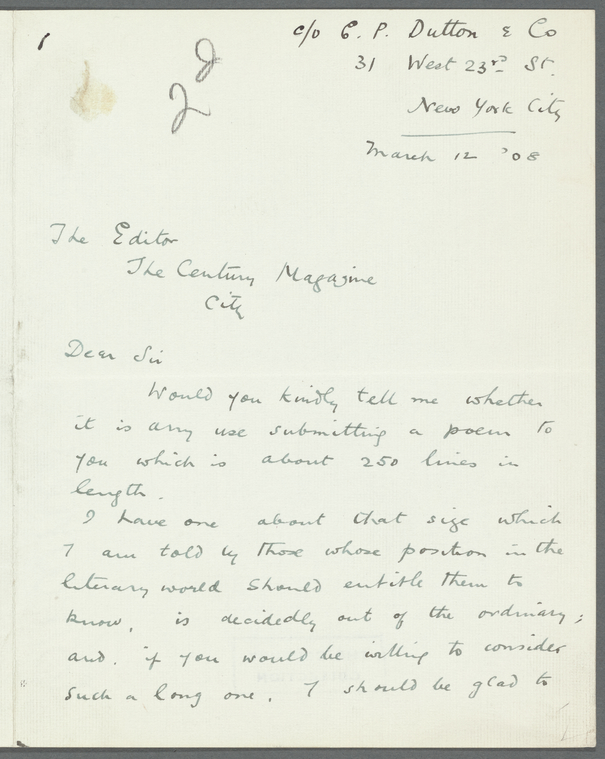 1
2d
c/o E. P. Dutton & Co
31 West 23rd St.
New York City
March 12 '08
The Editor
The Century Magazine
City
Dear Sir
Would you kindly tell me whether
it is any use submitting a poem to
you which is about 250 lines in
length.
I have one about that size which
I am told by those whose position in the
literary world should entitle them to
know, is decidedly out of the ordinary;
and, if you would be willing to consider
such a long one, I should be glad to